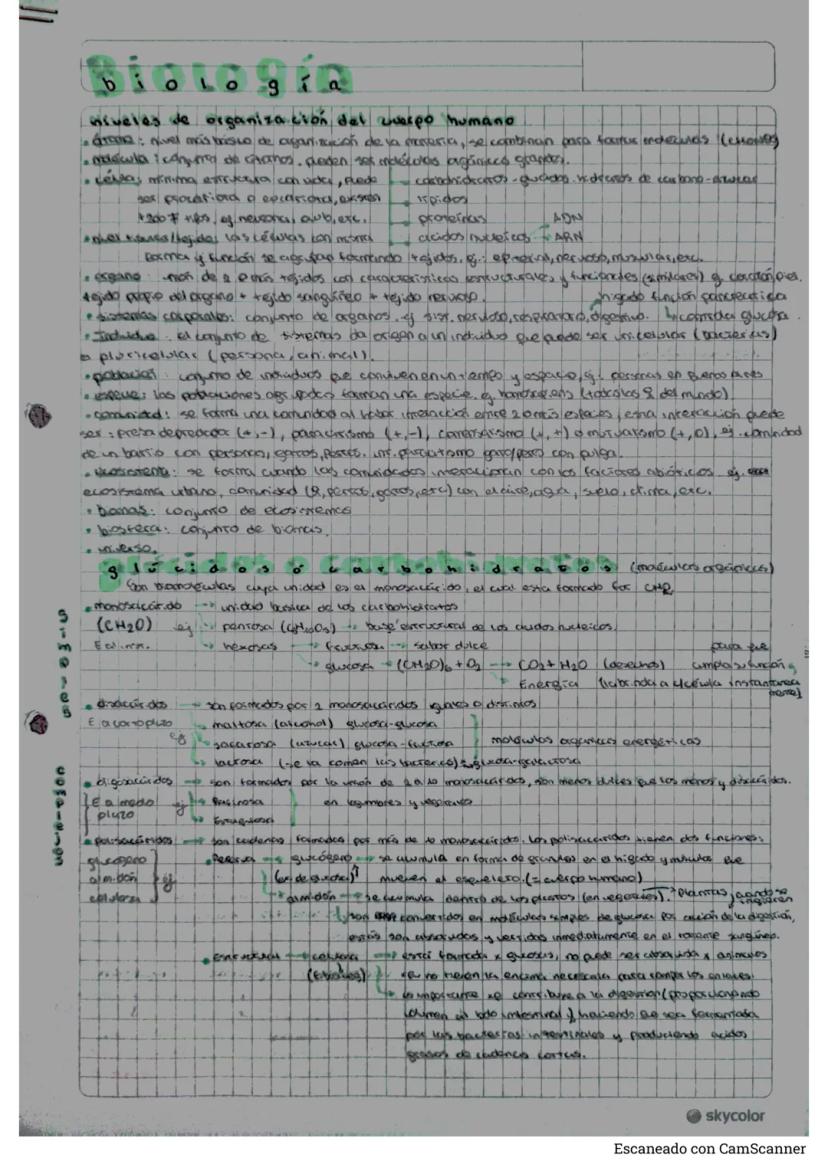 Biología
niveles de organización del cuerpo humano
• átomo: nivel más básico de organización de la materia, se combinan para formar moléculas (CHONPS)
• molécula: conjunto de chonps. pueden ser moléculas orgánicas grandes.
• célula: mínima estructura con vida, puede → carbohidratos - glúcidos. hidratos de carbono - azúcar
ser procariora o eucariora, existen → lípidos
+200 # tipos, ej neurona, etc. → proteínas ADN
• nivel tisular/tejido: las células con misma → ácidos nucleicos → ARN
forma y función se agrupan formando tejidos, ej: epitelial, nervoso, muscular, etc.
• órgano: unión de 2 o más tejidos con características estructurales y funcionales (similares) ej corazón
tejido propio del órgano + tejido sanguíneo + tejido nervoso. hígado función
• sistemas corporales: conjunto de órganos. ej sist. nervoso, respiratorio, digestivo. glucosa.
• Individuo: el conjunto de sistemas da origen a un individuo que puede ser unicelular (bacterias)
o pluricelular (persona, animal).
• población: conjunto de individuos que conviven en un tiempo y espacio, ej: personas en Buenos Aires
• especie: las poblaciones agrupadas forman una especie. ej homosapiens (todos los del mundo)
• comunidad: se forma una comunidad al haber interacción entre 2 o más especies, esta interacción puede
ser: presa depredador (+,-), parasitismo (+,-), (+,+) o mutualismo (+,0), ej. comunidad
de un barrio con personas, gatos, perros, int. parasitismo gato/perro con pulga.
• ecosistema: se forma cuando las comunidades interaccionan con los factores abióticos ej.
ecosistema urbano, comunidad (perros, gatos, etc) con el aire, agua, suelo, clima, etc.
• biomas: conjunto de ecosistemas
• biosfera: conjunto de biomas
• universo.
glúcidos o carbohidratos (moléculas orgánicas)
Son biomoléculas cuya unidad es el monosacárido, el cual esta formado por CH2O
simples
• monosacárido → unidad básica de los carbohidratos
(CH2O) ej → pentosa → base estructural de los ácidos nucleicos.
E a inm. → hexosas → fructosa → sabor dulce para que
→ glucosa → (CH2O)6 + O2 → CO2 + H2O (desechos) cumpla su función,
Energía (la brinda a la célula instantáneamente)
• disacáridos → son formados por 2 monosacáridos iguales o distintos
E a corto plazo → maltosa (alcohol) glucosa-glucosa
ej → sacarosa (azúcar) glucosa-fructosa moléculas orgánicas energéticas
→ lactosa (se la comen las bacterias) glucosa-galactosa
complejos
• oligosacáridos → son formados por la unión de 2 a 10 monosacáridos, son menos dulces que los monos y disacáridos.
E a medio ej → Rafinosa en legumbres y vegetales
plazo → Estaquiosa
• polisacáridos → son cadenas formadas por más de 10 monosacáridos. Los polisacáridos tienen dos funciones:
glucógeno • Reserva → glucógeno → se acumula en forma de granulos en el hígado y músculos que
almidón ej (ex de glucosa) mueven el esqueleto. (= cuerpo humano)
celulosa → almidón → se acumula dentro de las plantas (en vegetales). → plantas, cuando se ingieren
→ son convertidos en moléculas simples de glucosa por acción de la digestión,
estas son absorbidas y vertidas inmediatamente en el torrente sanguíneo.
• estructural → celulosa → está formada x glucosas, no puede ser absorbida x animales
que no tienen la enzima necesaria para romper los enlaces.
→ lo importante es contribuye a la digestion (proporcionando
volumen al bolo intestinal) haciendo que sea fermentada
por las bacterias intestinales y produciendo ácidos
grasos de cadena cortas.
skycolor
Escaneado con CamScanner